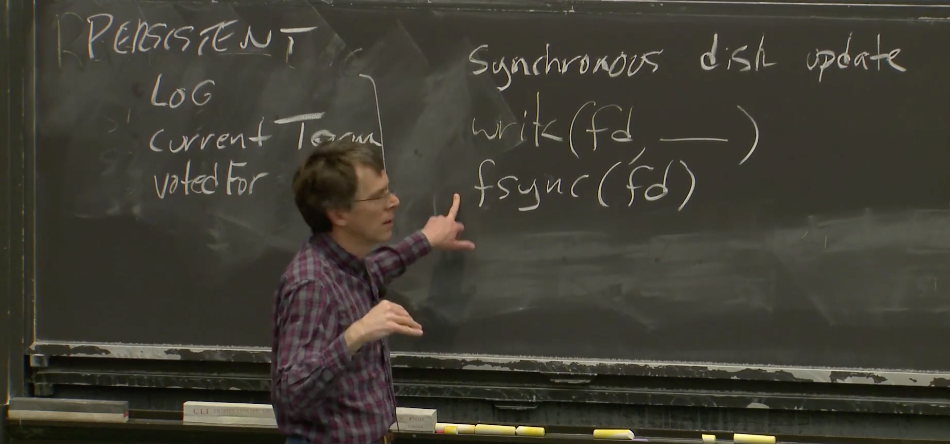 PERSISTENT
LOG
current Term
voted For
Synchronous disk update
write(fd, ___)
fsync(fd)